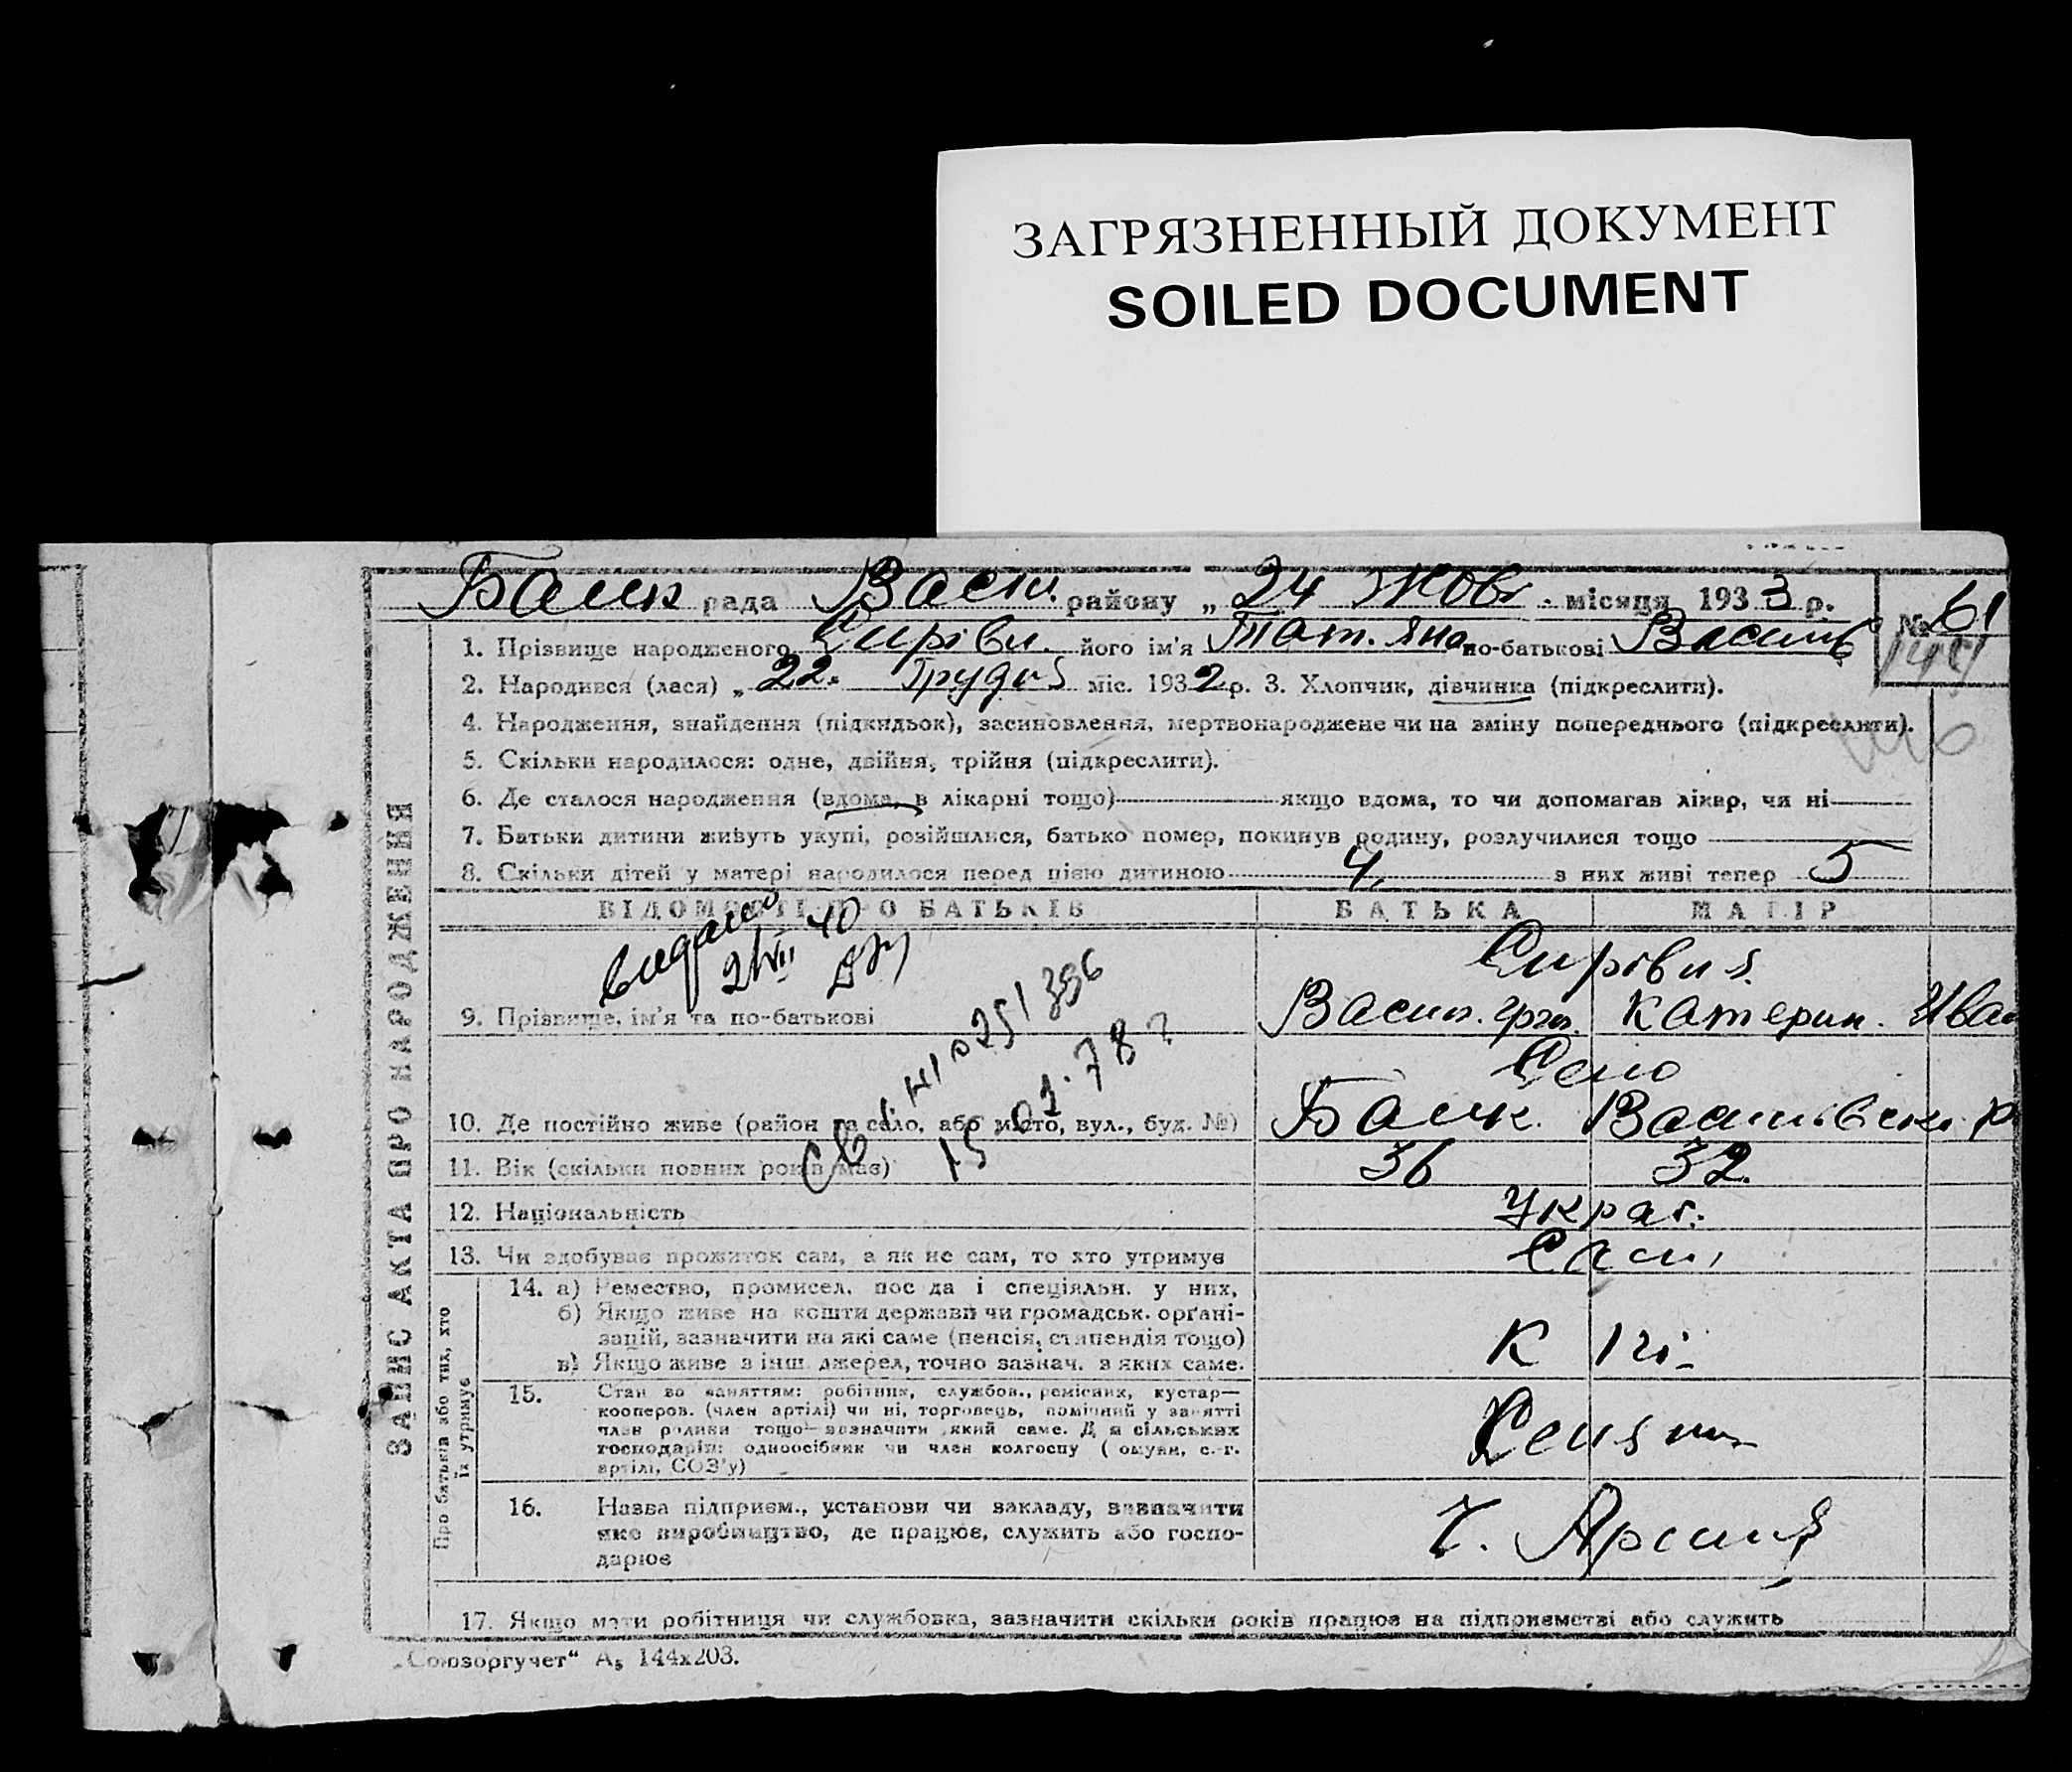 ЗАГРЯЗНЕННЫЙ ДОКУМЕНТ
SOILED DOCUMENT
Балк рада Васил. району „24 Жовт. місяця 1933 р. № 61
1. Прізвище народженого Сиріви. його ім'я Тат.яна по-батькові Василь
2. Народився (лася) „22. Грудня міс. 1932 р. 3. Хлопчик, дівчинка (підкреслити).
4. Народження, знайдення (підкидьок), засиновлення, мертвонароджене чи на зміну попереднього (підкреслити).
5. Скільки народилося: одне, двійня, трійня (підкреслити).
6. Де сталося народження (вдома, в лікарні тощо) якщо вдома, то чи допомагав лікар, чи ні
7. Батьки дитини живуть укупі, розійшлися, батько помер, покинув родину, розлучилися тощо
8. Скільки дітей у матері народилося перед цією дитиною 4, з них живі тепер 5
ЗАПИС АКТА ПРО НАРОДЖЕННЯ
ВІДОМОСТІ ПРО БАТЬКІВ БАТЬКА МАТІР
Видано
21/VII 40
9. Прізвище, ім'я та по-батькові
Васил. Катерин. Іван
Село
10. Де постійно живе (район та село, або місто, вул., буд. №) Балк. Васильвськ. р
15.01.78?
11. Вік (скільки повних років має) 36 32.
12. Національність Украї.
13. Чи здобуває прожиток сам, а як не сам, то хто утримує Сам,
Про батька або тих, хто їх утримує
14. а) Ремество, промисел, посада і спеціяльн. у них,
б) Якщо живе на кошти держави чи громадськ. орґані-
зацій, зазначити на які саме (пенсія, стипендія тощо)
в) Якщо живе з інш. джерел, точно зазнач. з яких саме.
15. Стан за заняттям: робітник, службов., ремісник, кустар—
кооперов. (член артілі) чи ні, торговець, помічний у занятті
член родини тощо—зазначити який саме. Для сільських
господарів: одноосібник чи член колгоспу (
с.-г.
артілі, СОЗ'у)
16. Назва підприєм., установи чи закладу, зазначити
яке виробництво, де працює, служить або госпо-
дарює
17. Якщо мати робітниця чи службовка, зазначити скільки років працює на підприємстві або служить
„Союзоргучет“ А₅ 144х203.